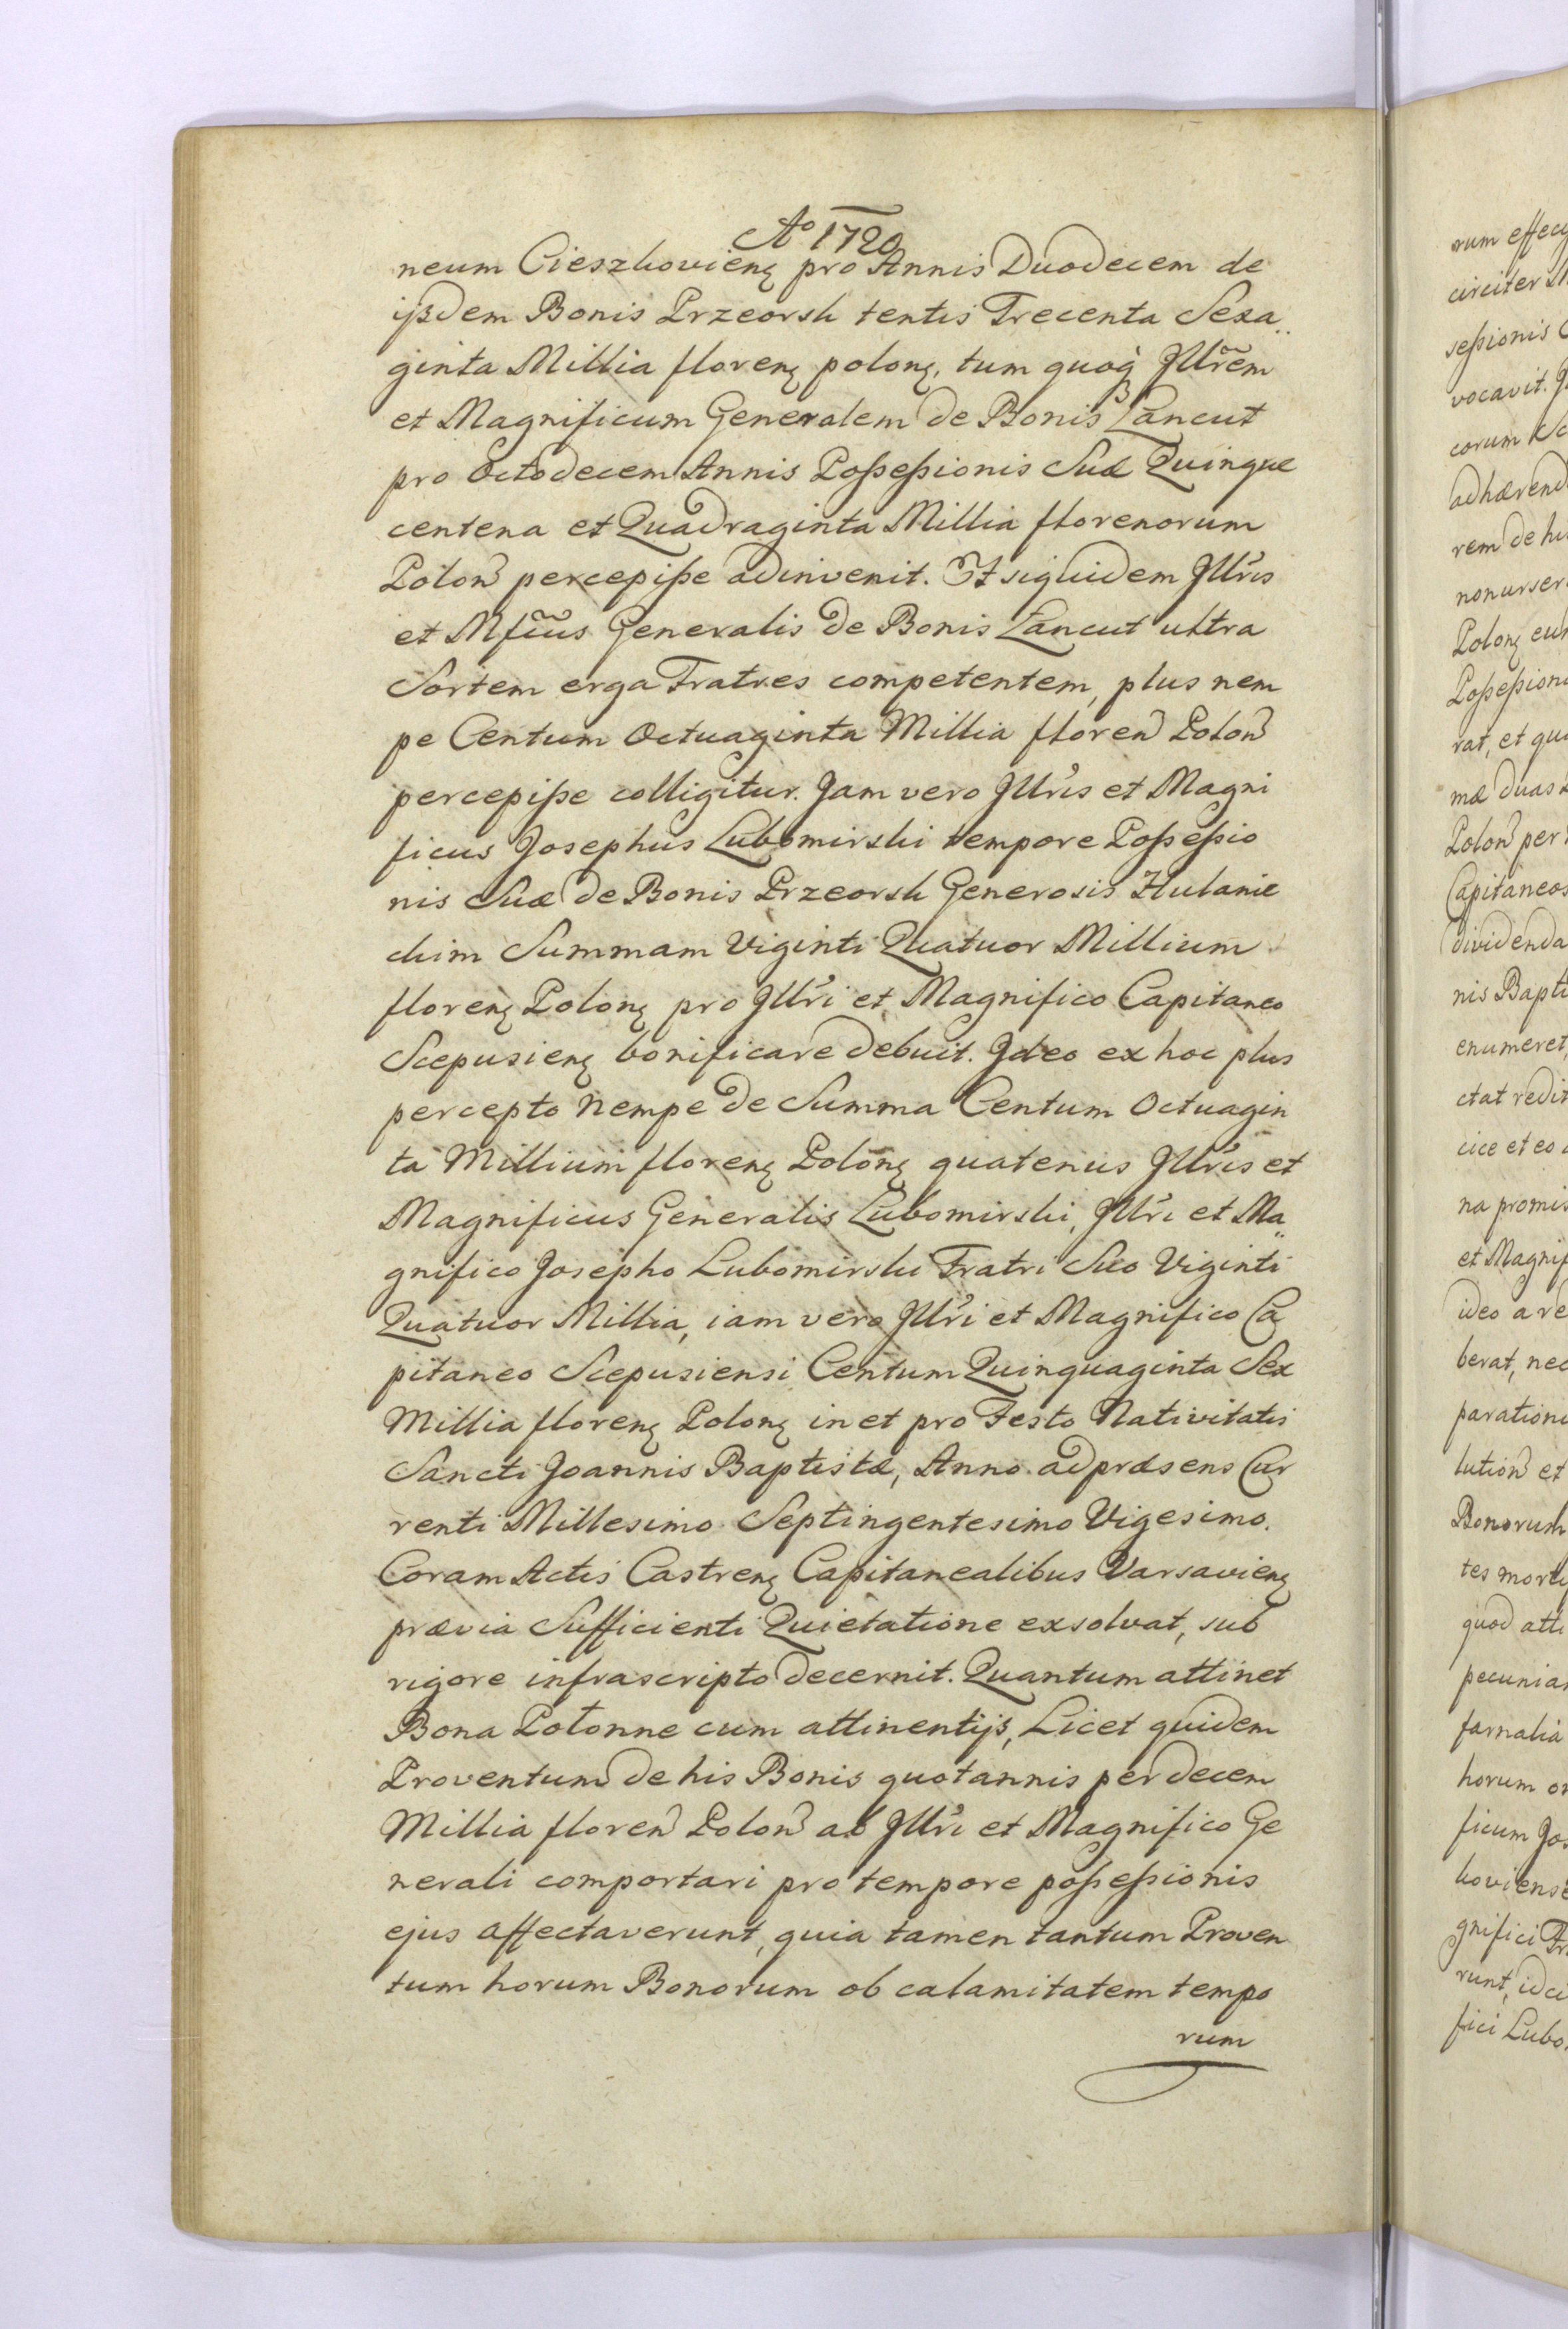 Aº 1720
neum Cieszkovienȝ pro Annis Duodecem de
ijsdem Bonis Przeorsk tentis Trecenta Sexa„
ginta Millia florenȝ polonȝ, tum quoqȝ Jllr̃em
et Magnificum Generalem de Bonis Łancut
pro Octodecem Annis Poßeßionis Suæ Quinque
centena et Quadraginta Millia florenorum
Polon percepiße adinvenit. Et siquidem Jllris
et Mfic̃us Generalis de Bonis Łancut ultra
Sortem erga Fratres competentem, plus nem
pe Centum Octuaginta Millia floren Polon
percepiße colligitur. Jam vero Jllris et Magni
ficus Josephus Lubomirski tempore Poßeßio
nis Suæ de Bonis Przeorsk Generosis Hulanic
chim Summam Viginti Quatuor Millium
florenȝ Polonȝ pro Jllri et Magnifico Capitaneo
Scepusienȝ bonificare debuit. Jdeo ex hoc plus
percepto nempe de Summa Centum Octuagin
ta Millium florenȝ Polonȝ quatenus Jllris et
Magnificus Generalis Lubomirski, Jllri et Ma„
gnifico Josepho Lubomirski Fratri Suo Viginti
Quatuor Millia, iam vero Jllri et Magnifico Ca
pitaneo Scepusiensi Centum Quinquaginta Sex
Millia florenȝ Polonȝ in et pro Festo Nativitatis
Sancti Joannis Baptistæ, Anno ad præsens Cur
renti Millesimo Septingentesimo Vigesimo.
Coram Actis Castrenȝ Capitanealibus Varsavienȝ
prævia Sufficienti Quietatione exsolvat, sub
rigore infrascripto decernit. Quantum attinet
Bona Połonne cum attinentijs, Licet quidem
Proventum de his Bonis quotannis per decem
Millia floren Polon ab Jllri et Magnifico Ge
nerali comportari pro tempore poßeßionis
ejus affectaverunt, quia tamen tantum Proven
tum horum Bonorum ob calamitatem tempo
rum
rum effec
circiter
seßionis
vocavit.
corum
adhærend
rem de hi
Polonȝ
Poßeßion
rat, et qu
mæ duas
Polon per
Capitaneos
dividenda
nis Bapti
enumeret,
ctat redit
cice et eo
na promis
et Magnif
ideo a re
berat, nec
paration
lution et
Bonorum
tes mort
quod atti
pecunia
farnalia
horum
ficum Jos
koviens
gnifici Fr
runt, idci
fici Lubo